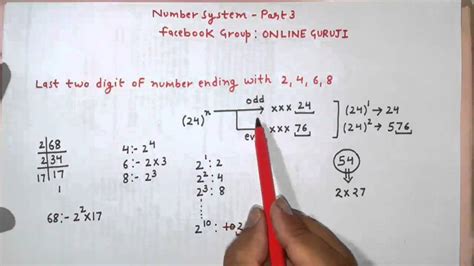 Number System - Part 3
Facebook Group: ONLINE GURUJI
Last two digit of number ending with 2, 4, 6, 8
(24)ⁿ
odd
xxx 24
xxx 76
(24)¹ → 24
(24)² → 576
2 | 68
2 | 34
17 | 17
1
68:- 2² × 17
4:- 2²
6:- 2 × 3
8:- 2³
2¹ : 2
2² : 4
2³ : 8
2¹⁰ :
54
2 × 27